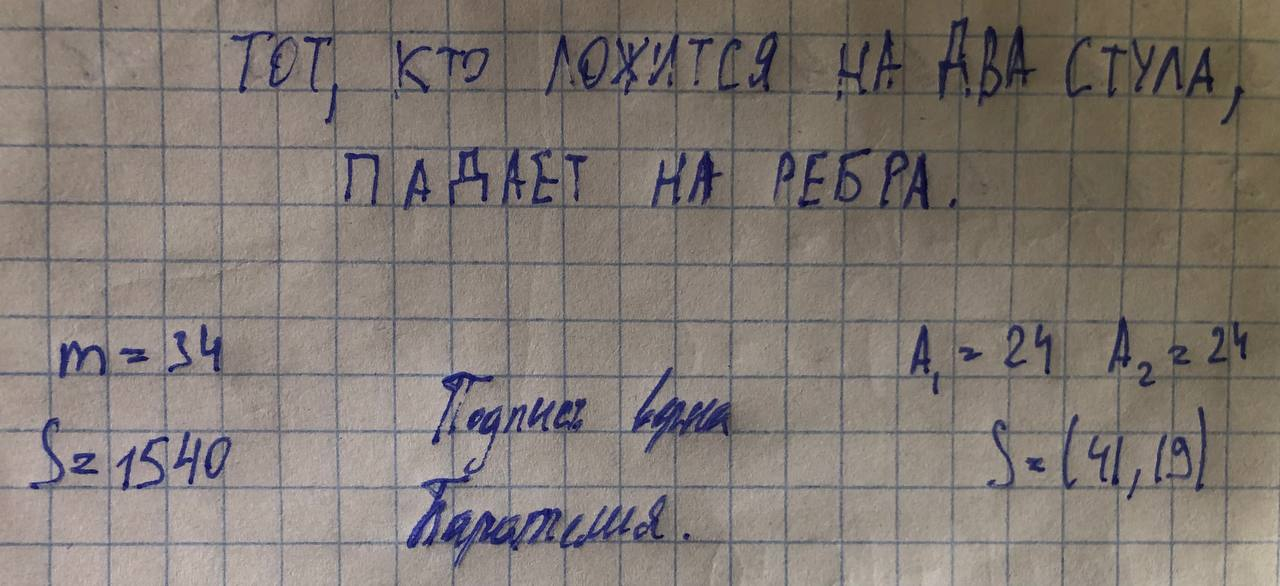 ТОТ, КТО ЛОЖИТСЯ НА ДВА СТУЛА,
ПАДАЕТ НА РЕБРА.
m = 34
S = 1540
Подпись верна
A₁ = 24 A₂ = 24
S = (41, 19)